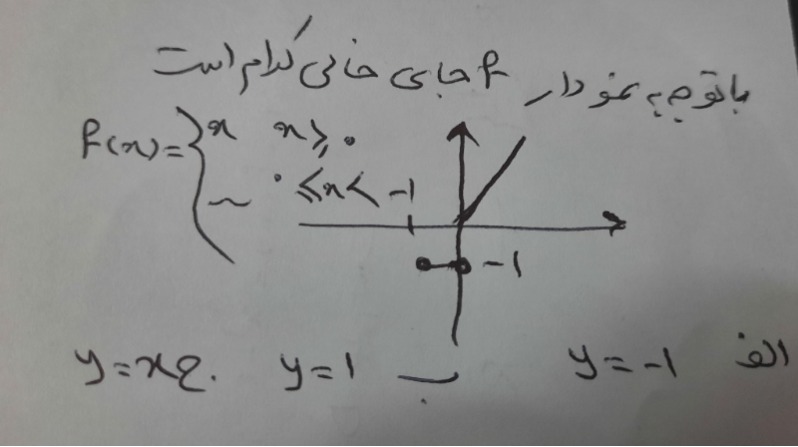 با توجه به نمودار f جای خالی کدام است
f(x)={ x x≥۰
~ ۰≤x<-1
-1
الف y=-1 ب y=1 ج y=x